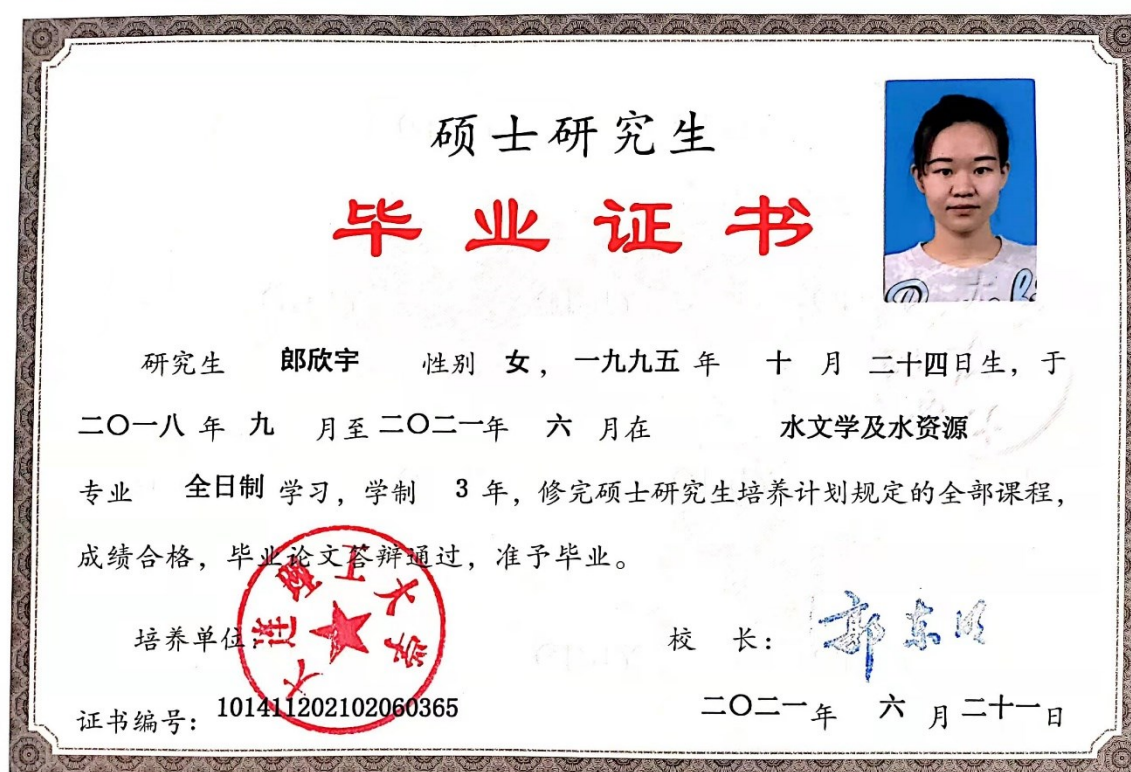 硕士研究生
毕业证书
研究生 郎欣宇 性别 女，一九九五 年 十 月 二十四日生，于
二〇一八 年 九 月至 二〇二一年 六 月在 水文学及水资源
专业 全日制 学习，学制 3 年，修完硕士研究生培养计划规定的全部课程，
成绩合格，毕业论文答辩通过，准予毕业。
大连理工大学
培养单位： 校 长： 郭东明
证书编号： 101411202102060365 二〇二一年 六 月 二十一日